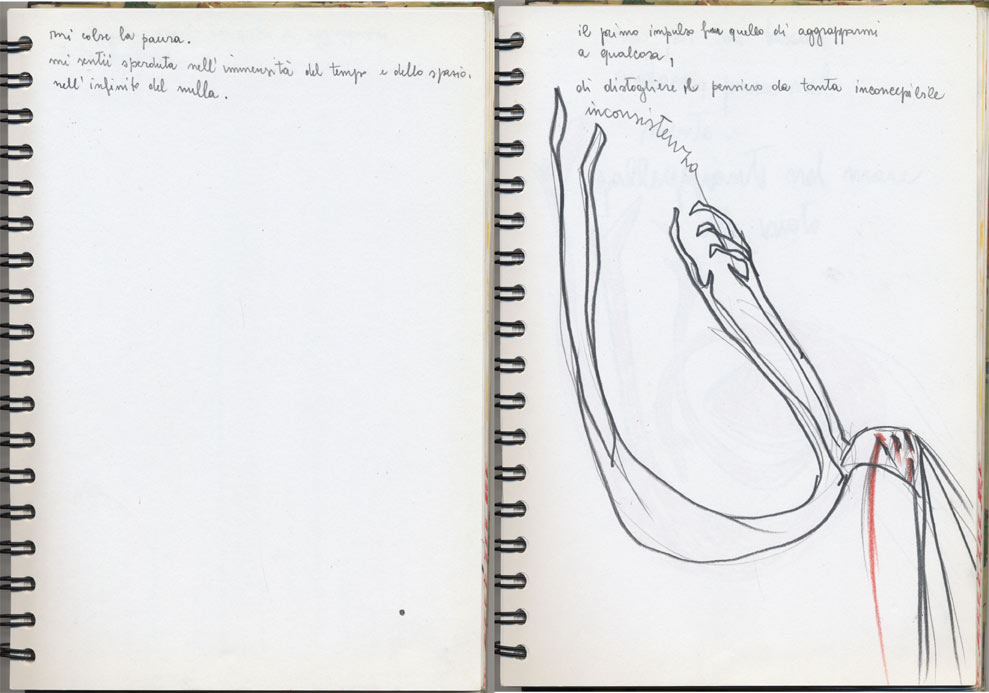 mi colse la paura.
mi sentii sperduta nell'immensità del tempo e dello spazio.
nell'infinito del nulla.
il primo impulso fu quello di aggrapparmi
a qualcosa,
di distogliere il pensiero da tanta inconcepibile
inconsistenza